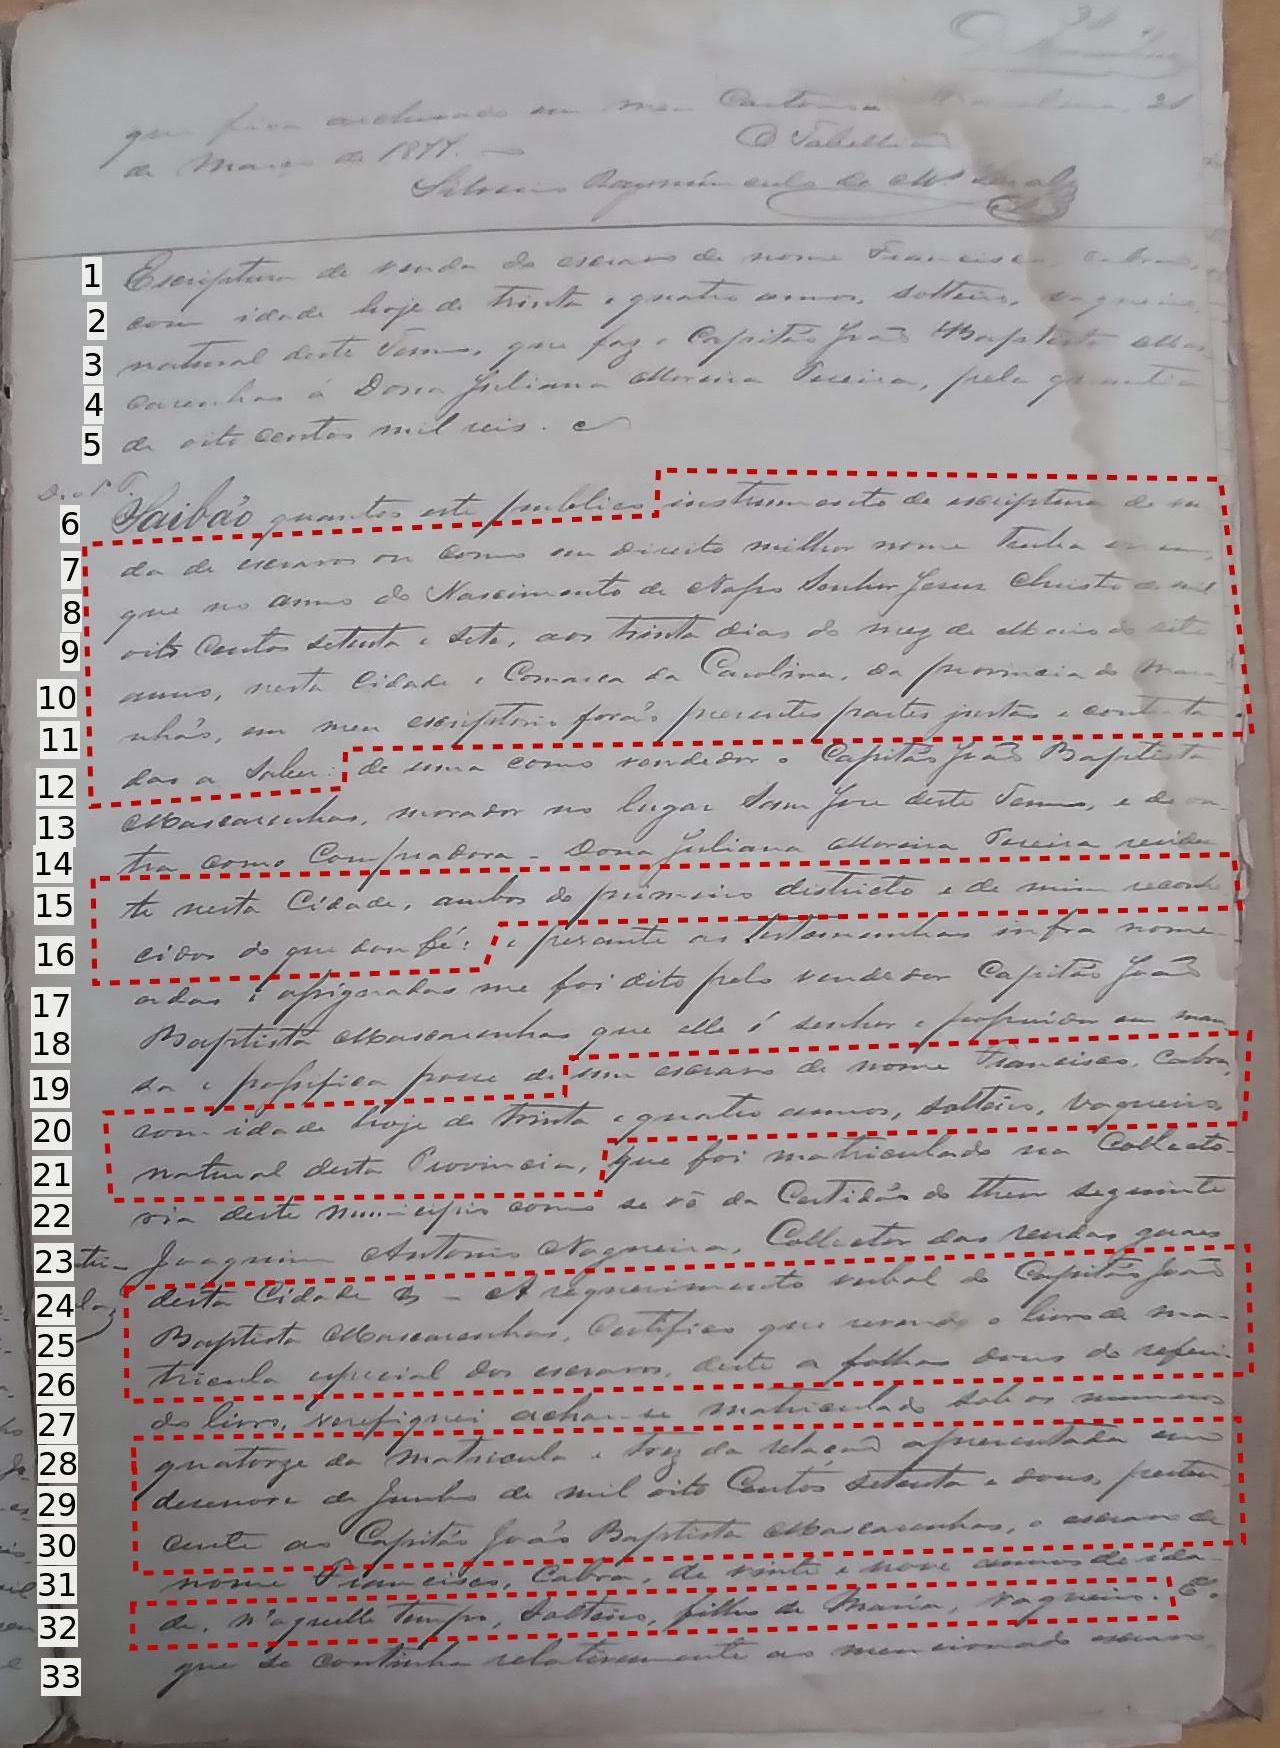 que fica archivado em meu Cartorio Carolina 21
de Março de 1877.
O Tabellião
1 Escriptura de venda do escravo de nome Francisco, cabra,
2 com idade hoje de trinta e quatro annos, solteiro, vaqueiro,
3 natural deste Termo, que faz o Capitão João Baptista Mas-
4 carenhas á Dona Juliana Moreira Pereira, pela quantia
5 de oito centos mil reis.
6 Saibão quantos este publico instrumento de escriptura de ven
7 da de escravo ou como em direito milhor nome tenha virem,
8 que no anno do Nascimento de Nosso Senhor Jesus Christo de mil
9 oito Centos setenta e sete, aos trinta dias do mez de Maio do dito
10 anno, nesta Cidade e Comarca da Carolina, da provincia do Mara
11 nhão, em meu escriptorio forão presentes partes justas e contracta
12 das a Saber: de uma como vendedor o Capitão João Baptista
13 Mascarenhas, morador no lugar Sam Jose deste Termo, e de ou-
14 tra como Compradora - Dona Juliana Moreira Pereira residen
15 te nesta Cidade, ambos do primeiro districto e de mim reconhe
16 cidos do que dou fé: e perante as testemunhas infra nome-
17 adas e assignadas me foi dito pelo vendedor Capitão João
18 Baptista Mascarenhas que elle é senhor e possuidor em man-
19 sa e passifica posse de um escravo de nome Francisco, Cabra,
20 com idade hoje de trinta e quatro annos, solteiro, vaqueiro
21 natural desta Provincia, que foi matriculado na Collecto-
22 ria deste municipio como se vê da Certidão do theor seguinte
23 Joaquim Antonio Nogueira, Collector das rendas geraes
24 desta Cidade - A requerimento verbal do Capitão João
25 Baptista Mascarenhas, Certifico que revendo o livro de ma-
26 tricula especial dos escravos, deste a folhas dous do referi-
27 do livro, verefiquei achar-se matriculado sob os numeros
28 quatorze da matricula e trez da relação apresentada em
29 desenove de Junho de mil oito Centos setenta e dous, perten
30 cente ao Capitão João Baptista Mascarenhas, o escravo de
31 nome Francisco, Cabra, de vinte e nove annos de ida-
32 de, n'aquelle tempo, Solteiro, filho de Maria, vaqueiro. E o
33 que se continha relativamente ao mencionado escravo